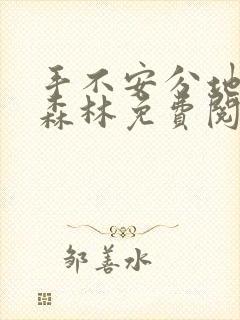 手不安分地
森林免费阅
邹善水